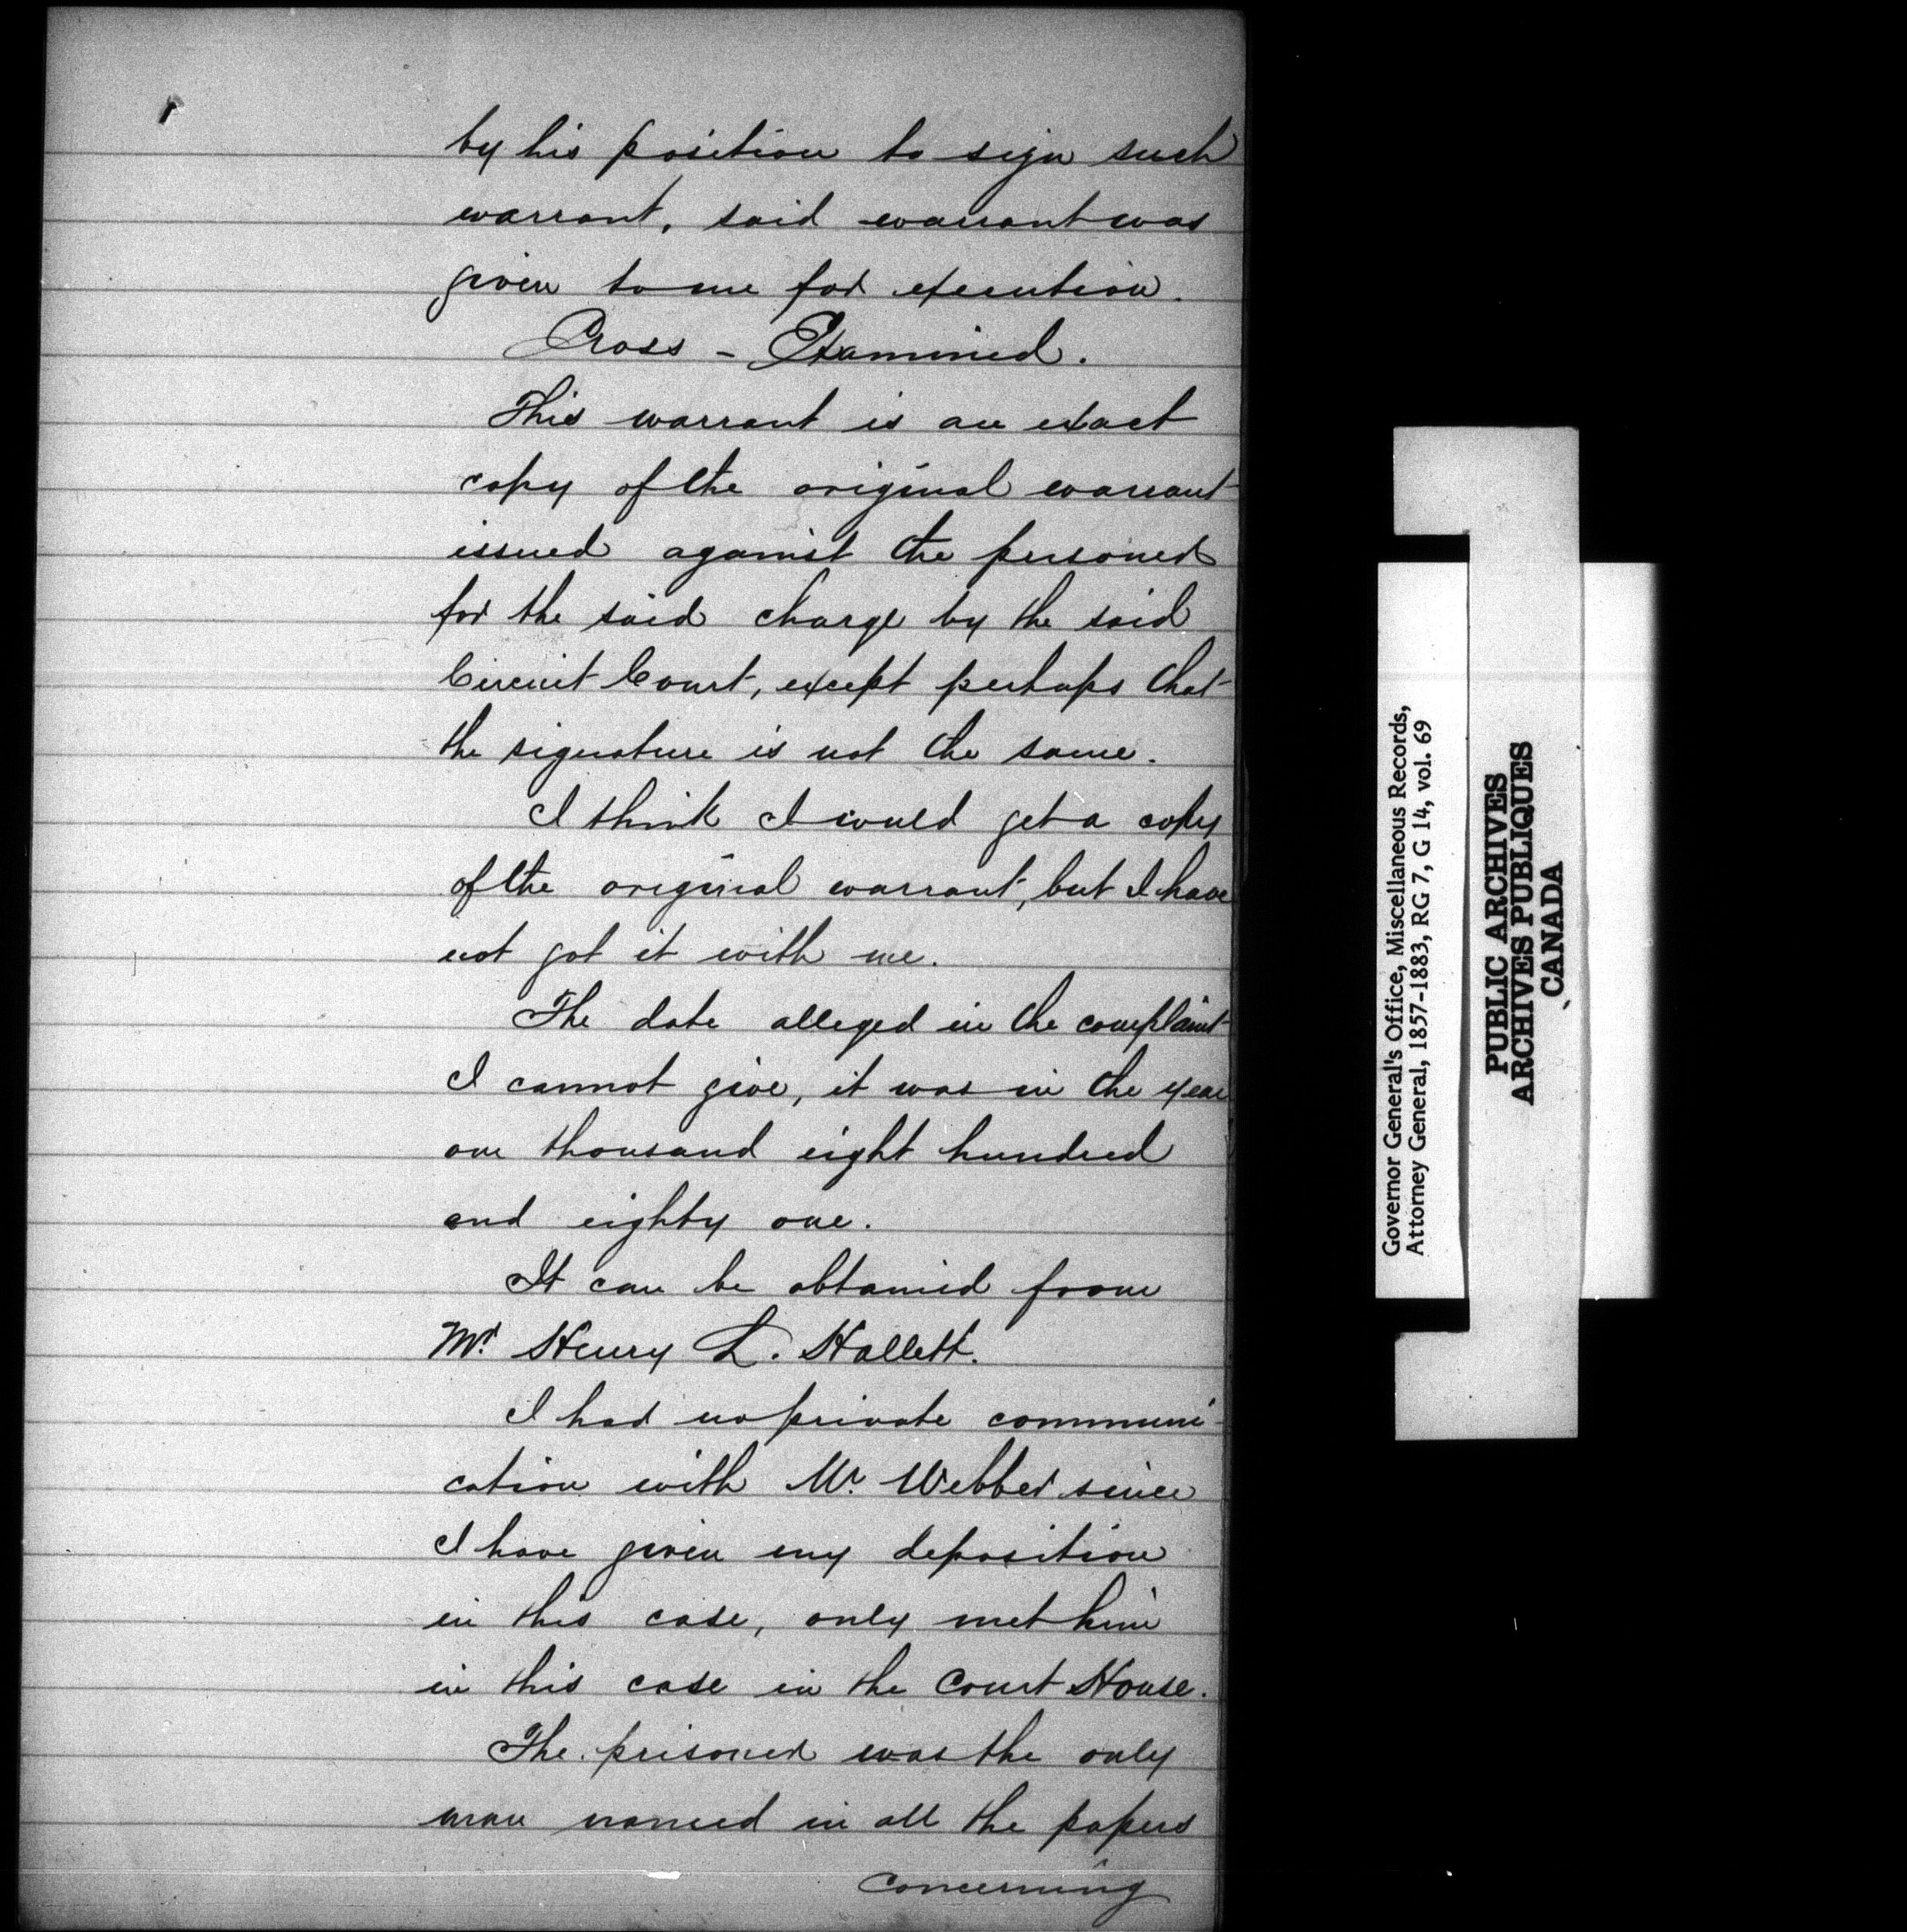 by his position to sign such
warrant, said warrant was
given to me for execution.
Cross - Examined.
This warrant is an exact
copy of the original warrant
issued against the personed
for the said charge by the said
Circuit Court, except perhaps that
the signature is not the same.
I think I could get a copy
of the original warrant, but I have
not got it with me.
The date alleged in the complaint
I cannot give, it was in the year
one thousand eight hundred
and eighty one.
It can be obtained from
Mr. Henry L. Hallett.
I had no private communi-
cation with Mr. Webber since
I have given my deposition
in this case, only met him
in this case in the Court House.
The prisoner was the only
man named in all the papers
concerning
Governor General's Office, Miscellaneous Records,
Attorney General, 1857-1883, RG 7, G 14, vol. 69
PUBLIC ARCHIVES
ARCHIVES PUBLIQUES
CANADA